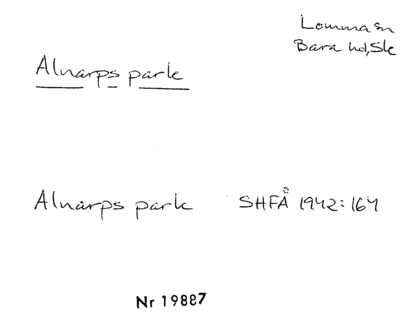 Lomma sn
Bara hd, Sk
Alnarps park
Alnarps park SHFÅ 1942:164
Nr 19887